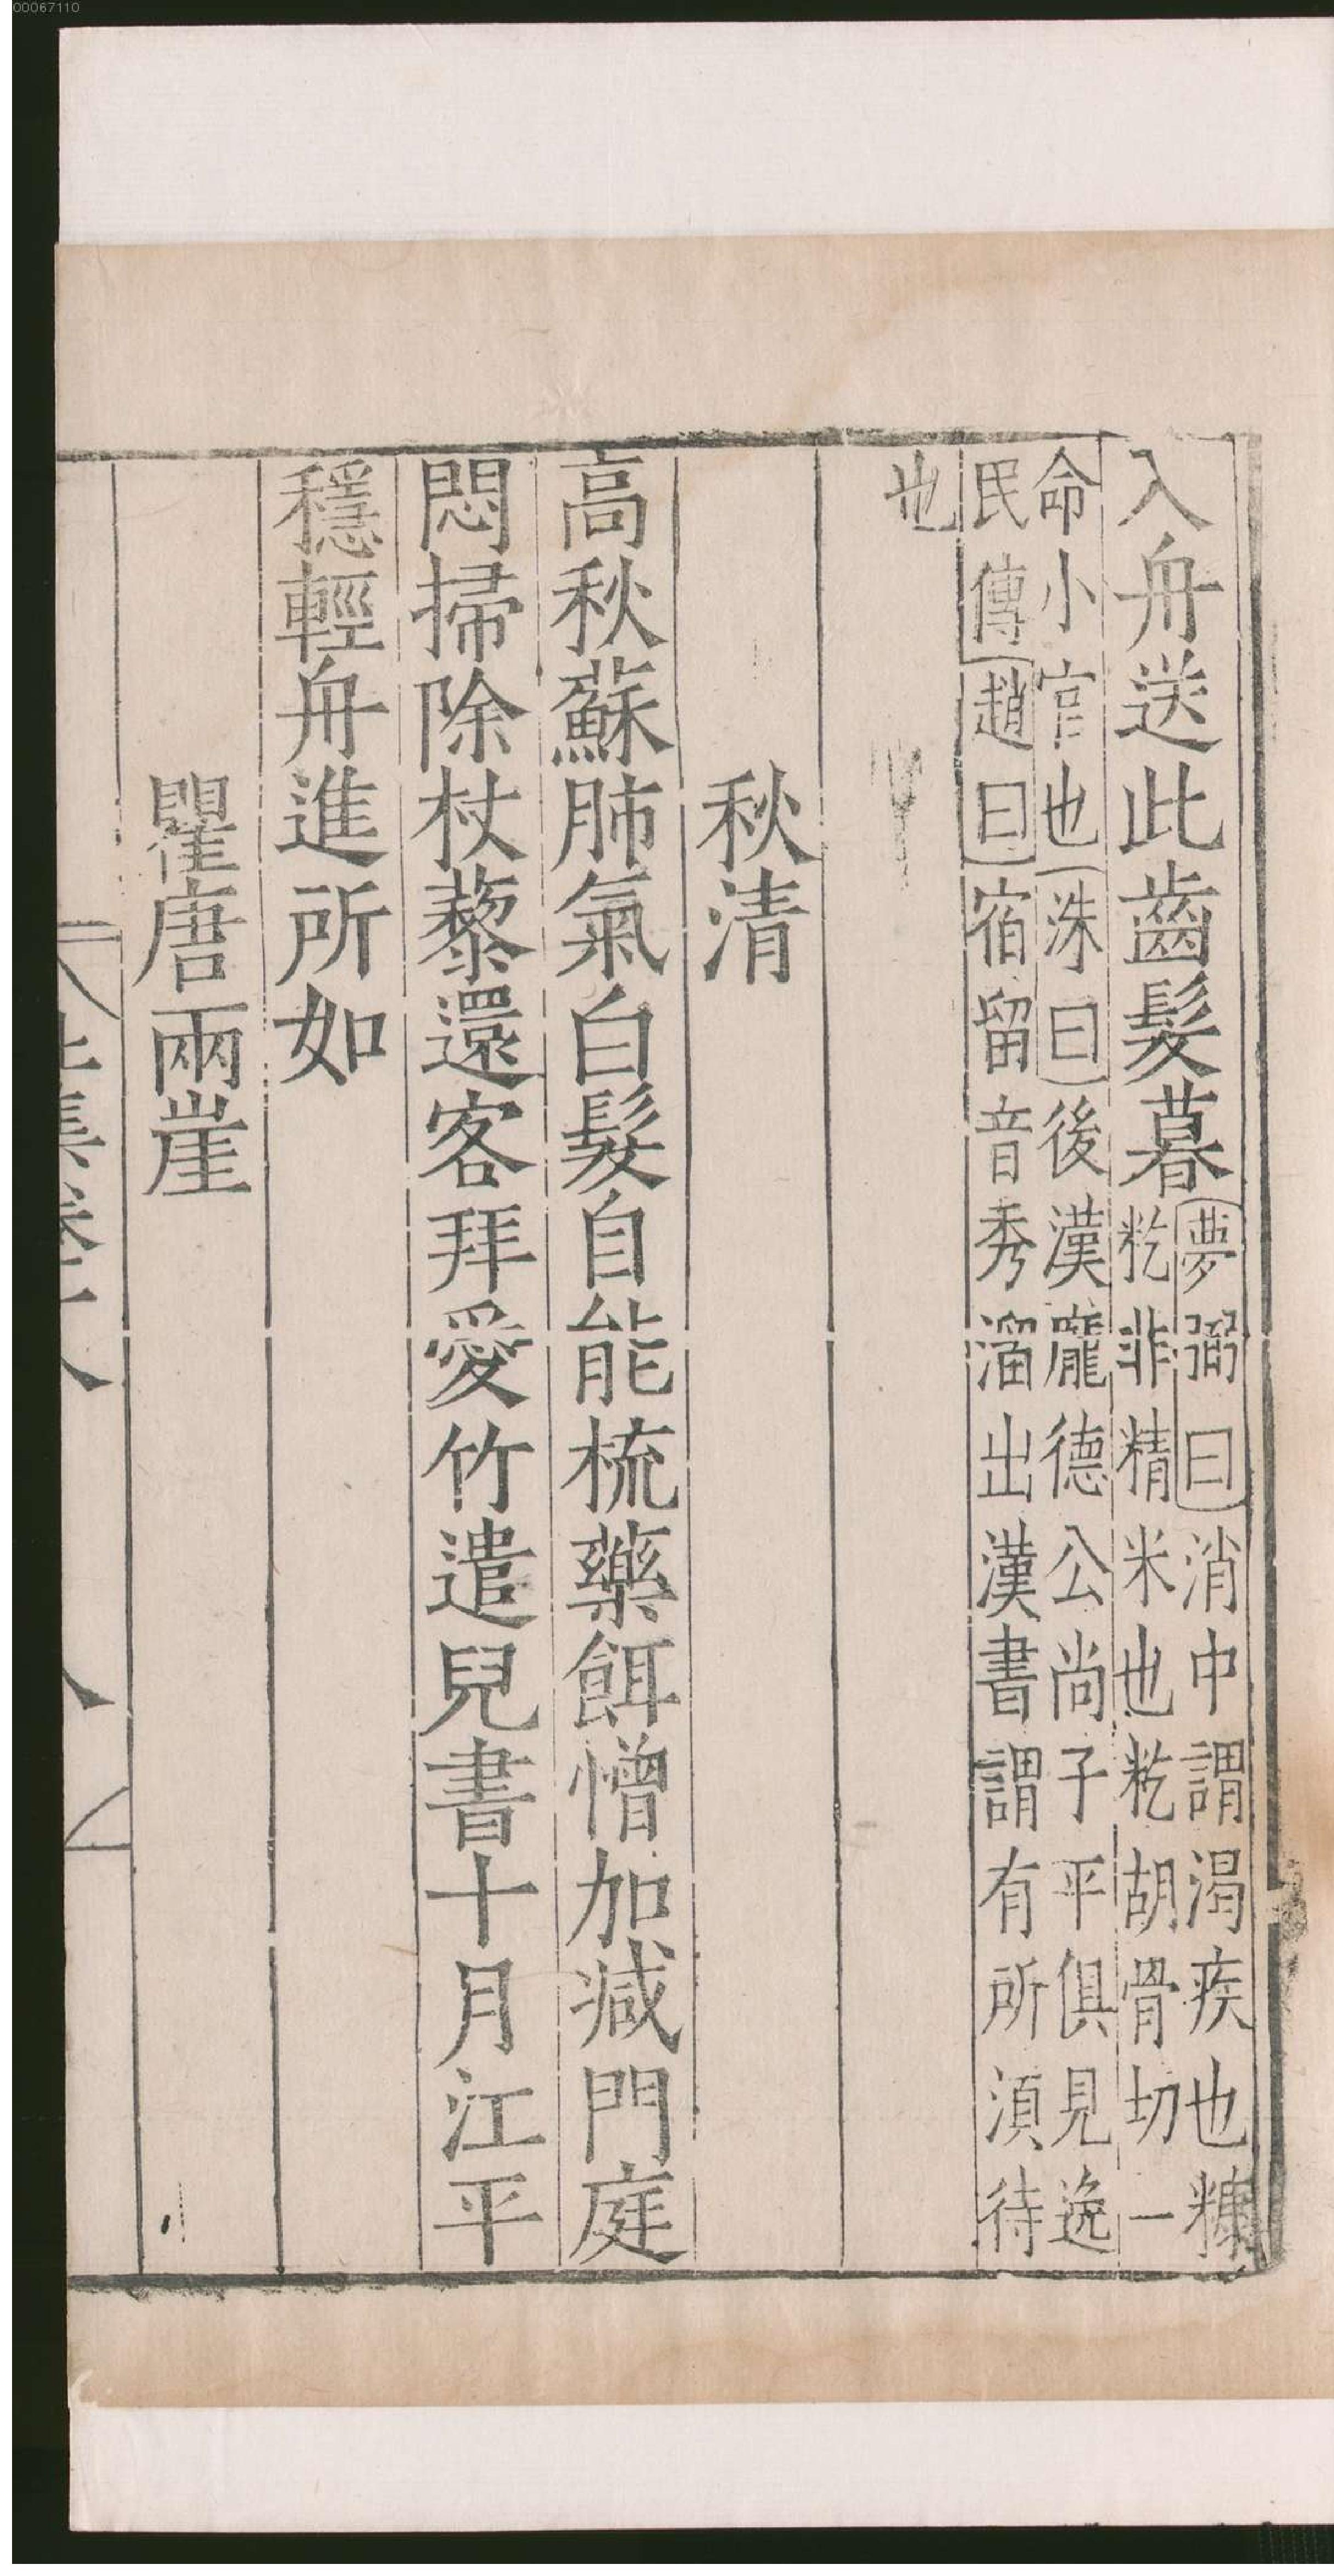 00067110
入舟送此齒髮暮
夢弼曰消中謂渴疾也糠
籺非精米也籺胡骨切一
命小官也洙曰後漢龐德公尚子平俱見逸
民傳趙曰宿留音秀溜出漢書謂有所湏待
也
秋清
高秋蘇肺氣白髮自能梳藥餌憎加減門庭
悶掃除杖藜還客拜愛竹遣兒書十月江平
穩輕舟進所如
瞿唐兩崖